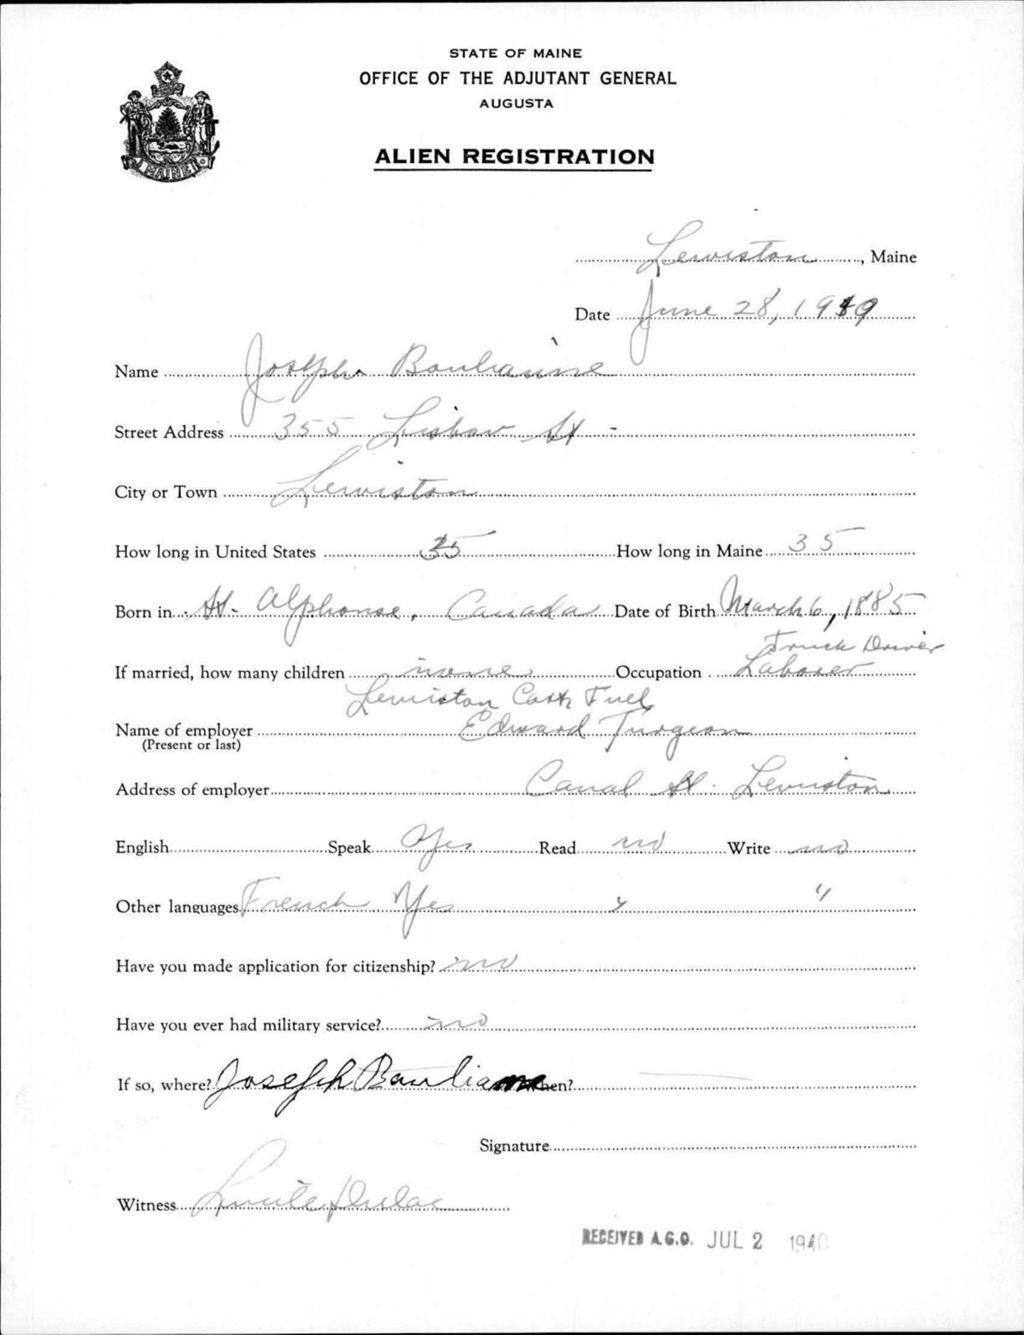 STATE OF MAINE
OFFICE OF THE ADJUTANT GENERAL
AUGUSTA
ALIEN REGISTRATION
MAINE
Lewiston, Maine
Date June 28, 1949
Name Joseph
Street Address 355 Lisbon St -
City or Town Lewiston
How long in United States 35 How long in Maine 35
Born in St. Alphonse, Canada Date of Birth March 6, 1885
Truck Driver
If married, how many children none Occupation Laborer
Lewiston Fuel
Name of employer Edward Turgeon
(Present or last)
Address of employer Canal St. Lewiston
English Speak Yes Read no Write no
Other languages French Yes " "
Have you made application for citizenship? no
Have you ever had military service? no
If so, where? Joseph when?
Signature
Witness Lucile Dulac
RECEIVED A.G.O. JUL 2 1940